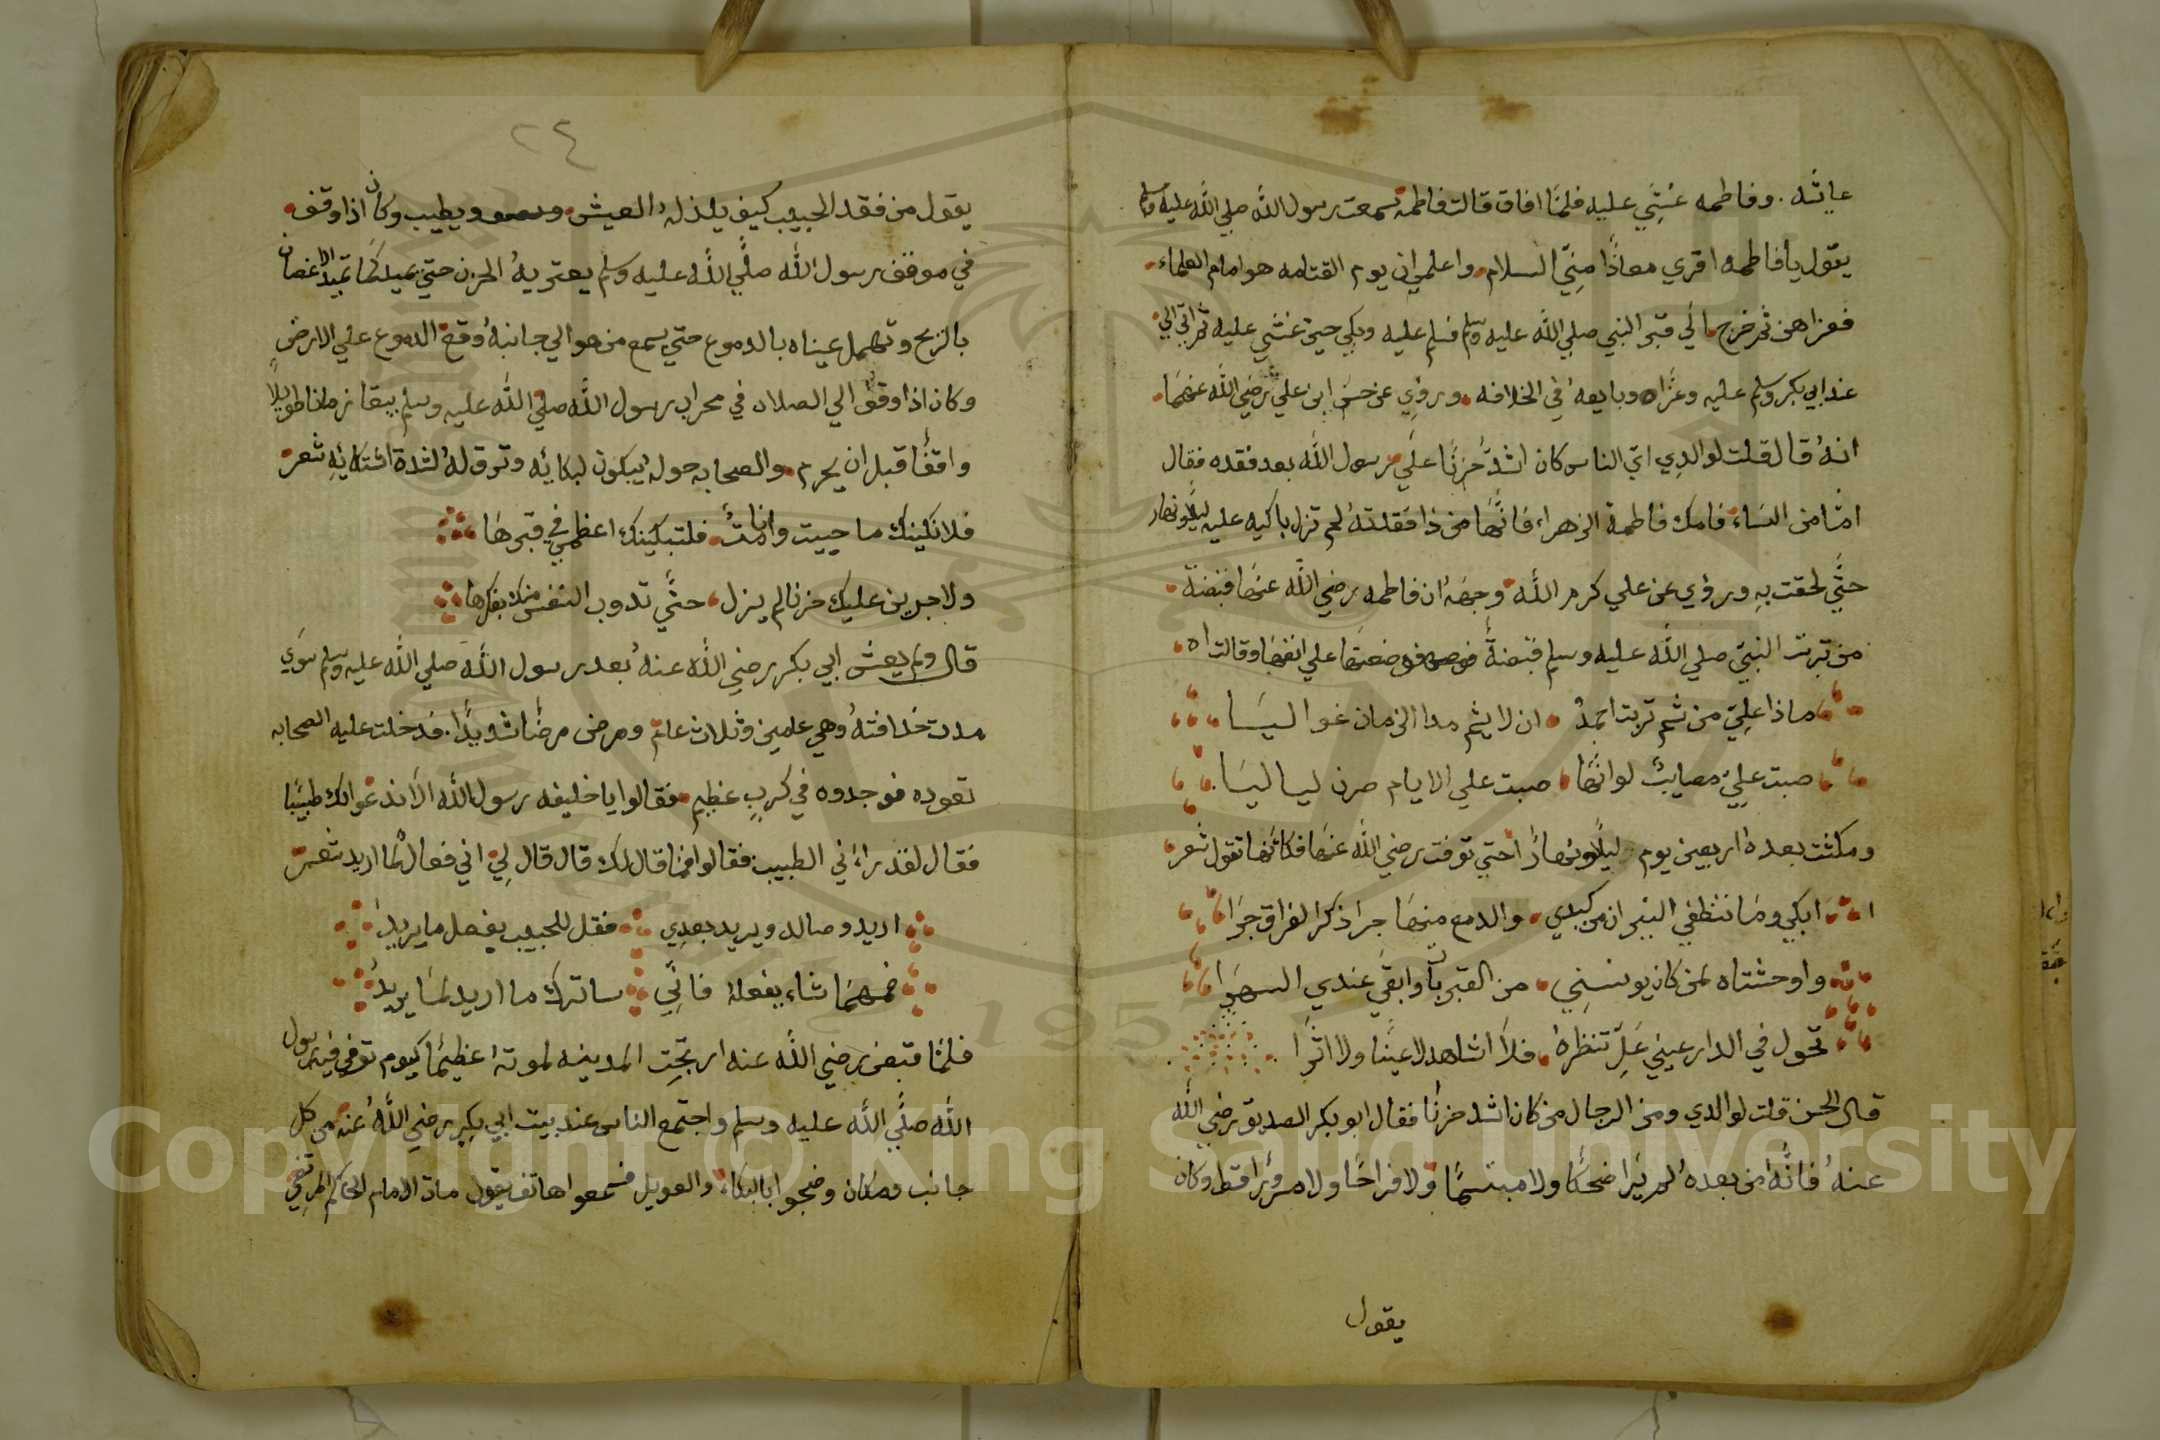 عايشه . وفاطمه غشي عليه فلما افاق قالت فاطمه سمعت رسول الله صلي الله عليه وسلم
يقول يا فاطمه اقري معاذا مني السلام واعلمي ان يوم القيامه هو امام العلماء
فعزاهن ثم خرج الي قبر النبي صلي الله عليه وسلم فسلم عليه وبكي حتي غشي عليه ثم اتي الي
عند ابي بكر وسلم عليه وعزاه وبايعه في الخلافه وروي عن حسن ابن علي رضي الله عنهما
انه قال قلت لوالدي اي الناس كان اشد حزنا علي رسول الله بعد فقده فقال
اما من النساء فامك فاطمة الزهراء فانها من ذا فقلته لم تزل باكيه عليه ليلا ونهار
حتي لحقت به وروي عن علي كرم الله وجهه ان فاطمه رضي الله عنها قبضة
من تربت النبي صلي الله عليه وسلم قبضة وضعتها علي انفها وقالت اه
ماذا علي من شم تربت احمد ان لا يشم مدا الزمان غواليا
صبت علي مصايب لو انها صبت علي الايام صرن لياليا
ومكثت بعده اربعين يوم ليلا ونهارا حتي توفت رضي الله عنها فكانها تقول شعر
ابكي وما تنطفي النيران من كبدي والدمع منها جرا ذكر الفراق جرا
واوحشتاه لمن كان يونسني من القبر بات وابقي عندي السهرا
تحول في الدار عيني عل تنظره فلا اشاهد لا عينا ولا اثرا
قال الحسن قلت لوالدي ومن الرجال من كان اشد حزنا فقال ابو بكر الصديق رضي الله
عنه فانه من بعده لم يرا ضحكا ولا مبتسما ولا فراحا ولا مسرورا قط وكان
يقول
٢٤
يقول من فقد الحبيب كيف يلذ له العيش ويطيب وكان اذا وقف
في موقف رسول الله صلي الله عليه وسلم يعتريه الحزن حتي يميل كما تميد الاغصان
بالريح وتهمل عيناه بالدموع حتي يسمع من هو الي جانبه وقع الدموع علي الارض
وكان اذا وقف الي الصلاه في محراب رسول الله صلي الله عليه وسلم يبقا زمانا طويلا
واقفا قبل ان يحرم والصحابه حوله يبكون لبكائه وترق له لشدة اشتكائه شعر
فلا نكينك ما حييت وان امت فلتبكينك اعظمي في قبرها
ولا جرين عليك حزنا لم يزل حتي تدوب النفس منك بفكرها
قال ولم يعش ابي بكر رضي الله عنه بعد رسول الله صلي الله عليه وسلم سوي
مدت خلافته وهي علمين وثلاث عام ومرض مرضا شديدا . فدخلت عليه الصحابه
تعوده فوجدوه في كرب عظيم فقالوا يا خليفه رسول الله الا ندعوا لك طبيبا
فقال لقد راءني الطبيب فقالوا فما قال لك قال قال لي اني فعال لما اريد شعر
اريد وصاله ويريد بعدي فقل للحبيب يفعل ما يريد
فمهما شاء يفعله فاني ساترك ما اريد لما يريد
فلما قبض رضي الله عنه ارتجت المدينه لموته اعظيما كيوم توفي فيه رسول
الله صلي الله عليه وسلم واجتمع الناس عند بيت ابي بكر رضي الله عنه من كل
جانب ومكان وضجوا بالبكاء والعويل فسمعوا هاتف يقول مات الامام الحاكم المرتضي
Copyright © King Saud University
1957